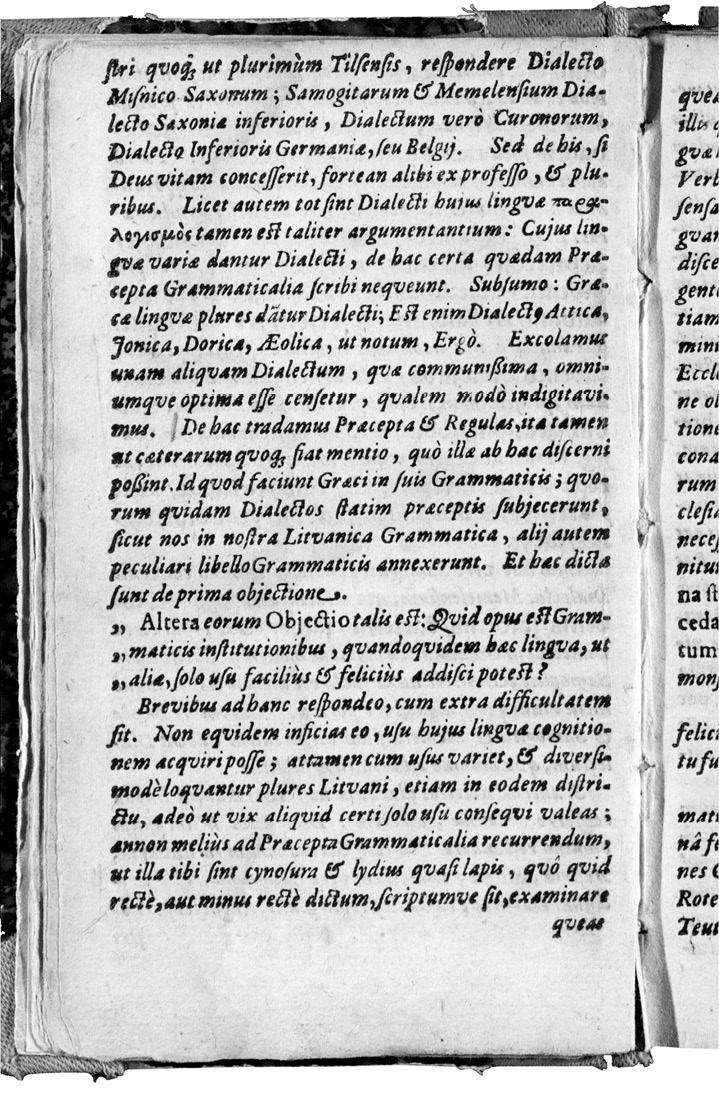 ſtri quoq; ut plurimùm Tilſenſis, reſpondere Dialecto
Miſnico Saxonum; Samogitarum & Memelenſium Dia-
lecto Saxoniæ inferioris, Dialectum verò Curonorum,
Dialecto Inferioris Germaniæ, ſeu Belgij. Sed de his, ſi
Deus vitam conceſſerit, fortean alibi ex profeſſo, & plu-
ribus. Licet autem tot ſint Dialecti hujus lingvæ παρα-
λογισμὸς tamen eſt taliter argumentantium: Cujus lin-
gvæ variæ dantur Dialecti, de hac certa quædam Præ-
cepta Grammaticalia ſcribi nequeunt. Subſumo: Græ-
cæ lingvæ plures dātur Dialecti; Eſt enim Dialectꝰ Attica,
Jonica, Dorica, Æolica, ut notum, Ergò. Excolamus
unam aliquam Dialectum, quæ communißima, omni-
umque optima eſſe cenſetur, qualem modò indigitavi-
mus. De hac tradamus Præcepta & Regulas, ita tamen
ut cæterarum quoq; fiat mentio, quò illæ ab hac diſcerni
poßint. Id quod faciunt Græci in ſuis Grammaticis; quo-
rum quidam Dialectos ſtatim præceptis ſubjecerunt,
ſicut nos in noſtra Litvanica Grammatica, alij autem
peculiari libello Grammaticis annexerunt. Et hæc dicta
ſunt de prima objectione.
„ Altera eorum Objectio talis eſt: Quid opus eſt Gram-
„ maticis inſtitutionibus, quandoquidem hæc lingva, ut
„ aliæ, ſolo uſu faciliùs & feliciùs addiſci poteſt?
Brevibus ad hanc reſpondeo, cum extra difficultatem
ſit. Non equidem inficias eo, uſu hujus lingvæ cognitio-
nem acquiri poſſe; attamen cum uſus variet, & diverſi-
modè loquantur plures Litvani, etiam in eodem diſtri-
ctu, adeò ut vix aliquid certi ſolo uſu conſequi valeas;
annon meliùs ad Præcepta Grammaticalia recurrendum,
ut illa tibi ſint cynoſura & lydius quaſi lapis, quô quid
rectè, aut minus rectè dictum, ſcriptumve ſit, examinare
queas
quea
illis
gvæ
Verb
ſenſa
gvan
diſce
gente
tiam
mini
Eccl
ne ol
tione
cona
rum
cleſiæ
neceſ
nitur
na ſt
ceda
tum
monſ
felici
tu fu
mati
nâ ſi
nes
Rote
Teut